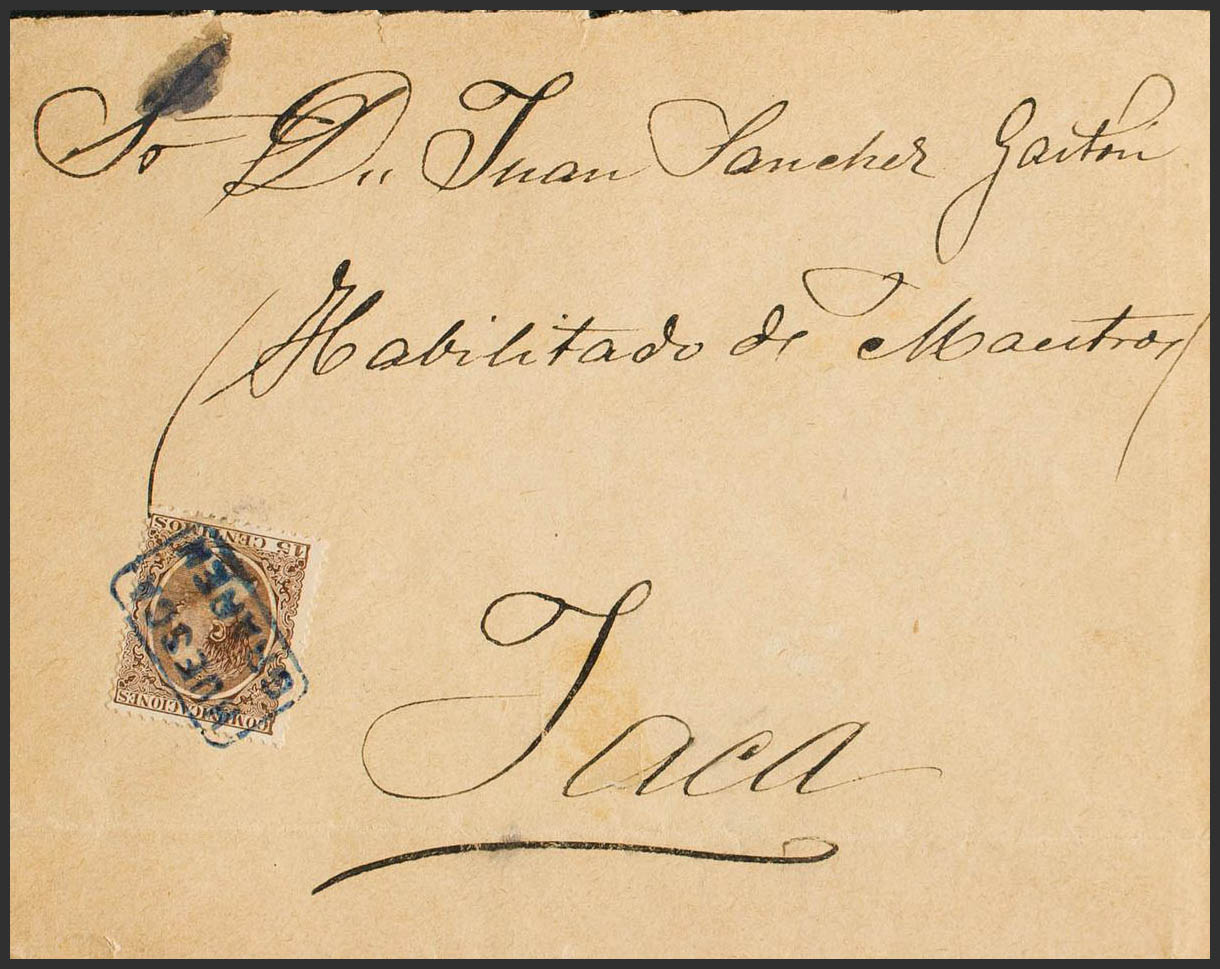 Sr Dn Juan Sanchez Gastón
(Habilitado de Maestros)
15 CENTIMOS
COMUNICACIONES
HUESCA
Jaca